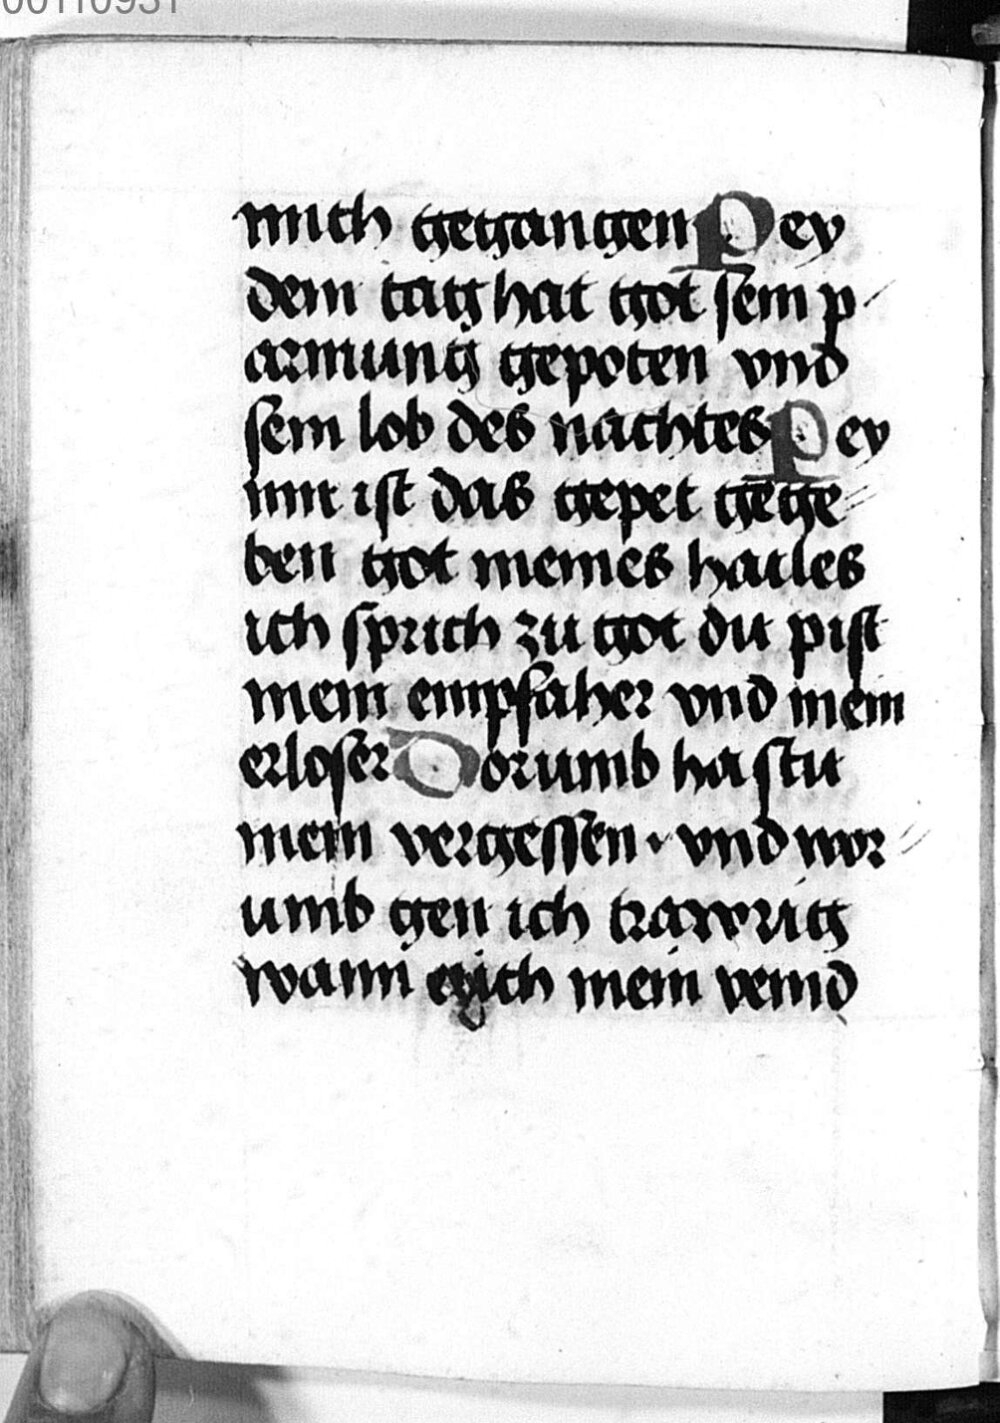 00110931
mich gegangen Pey
dem tag hat got sein p
armung gepoten vnd
sein lob des nachtes Pey
mir ist das gepet gege
ben got meines hailes
ich sprich zu got du pist
mein empfaher vnd mein
erloser Dorumb hastu
mein vergessen · vnd wor
umb gen ich trawrig
wann mich mein veind